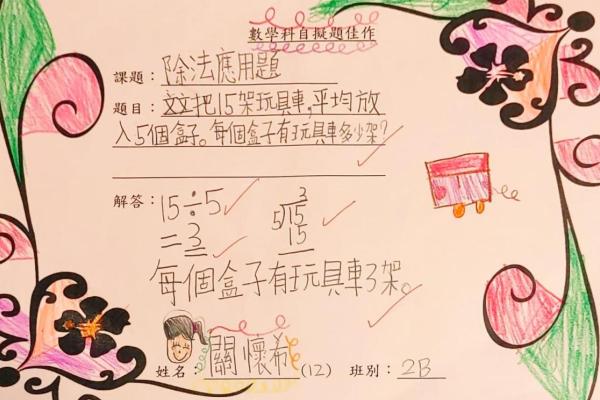 數學科自擬題佳作
課題：除法應用題
題目：文文把15架玩具車,平均放
入5個盒子。每個盒子有玩具車多少架?
解答：15÷5
=3
3
5
15
15
每個盒子有玩具車3架。
姓名：關懷希(12) 班別：2B